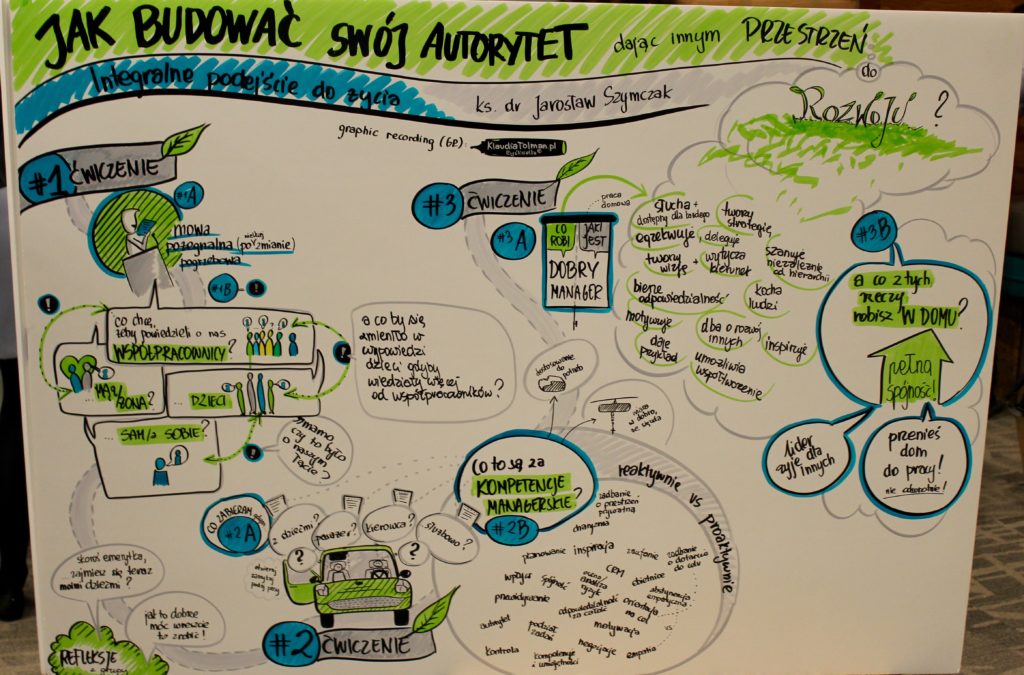 JAK BUDOWAĆ SWÓJ AUTORYTET dając innym PRZESTRZEŃ
do
ROZWOJU?
Integralne podejście do życia
ks. dr Jarosław Szymczak
graphic recording (GR):
KlaudiaTolman.pl
#1 ĆWICZENIE
#1A
mowa
pożegnalna
pogrzebowa
#1B
!
!
co chcę,
żeby powiedzieli o nas
WSPÓŁPRACOWNICY?
!
MĄŻ/
ŻONA?
... DZIECI
... SAM/A SOBIE?
!
mamo
czy to było
o naszym
Tacie?
a co by się
zmieniło w
wypowiedzi
dzieci gdyby
wiedziały więcej
od współpracowników?
#2 ĆWICZENIE
CO ZABIERAM
#2A
z dziećmi?
pasażer?
kierowca?
służbowo?
?
?
skoro emerytka,
... zajmiesz się teraz
moimi dziećmi?
jak to dobrze
móc wreszcie
to zrobić!
REFLEKSJE
z grupy
Co to są za
KOMPETENCJE
MANAGERSKIE?
#2B
dostosowanie
do potrzeb
reaktywnie vs proaktywnie
zadbanie
o przestrzeń
prywatną
charyzma
planowanie
inspiracja
zaufanie
zadbanie
o dotarcie
do celu
wpływ
spójność
ocena
analiza
ryzyk
CEM
obietnice
przewidywanie
odpowiedzialność
za całość
orientacja
na cel
autorytet
podział
zadań
motywacja
kontrola
kompetencje
i umiejętności
negocjacje
empatia
#3 ĆWICZENIE
#3A
praca
domowa
CO
ROBI
JAKI
JEST
DOBRY
MANAGER
słucha +
dostępny dla każdego
tworzy
strategię
egzekwuje
deleguje
tworzy
wizję
+ wytycza
kierunek
szanuje
niezależnie
od hierarchii
bierze
odpowiedzialność
kocha
ludzi
motywuje
daje
przykład
dba o rozwój
innych
inspiruje
umożliwia
współtworzenie
#3B
a co z tych
rzeczy
robisz "W DOMU"?
pełna
spójność!
lider
żyje dla
innych
przenieś
dom
do pracy!
nie odwrotnie!